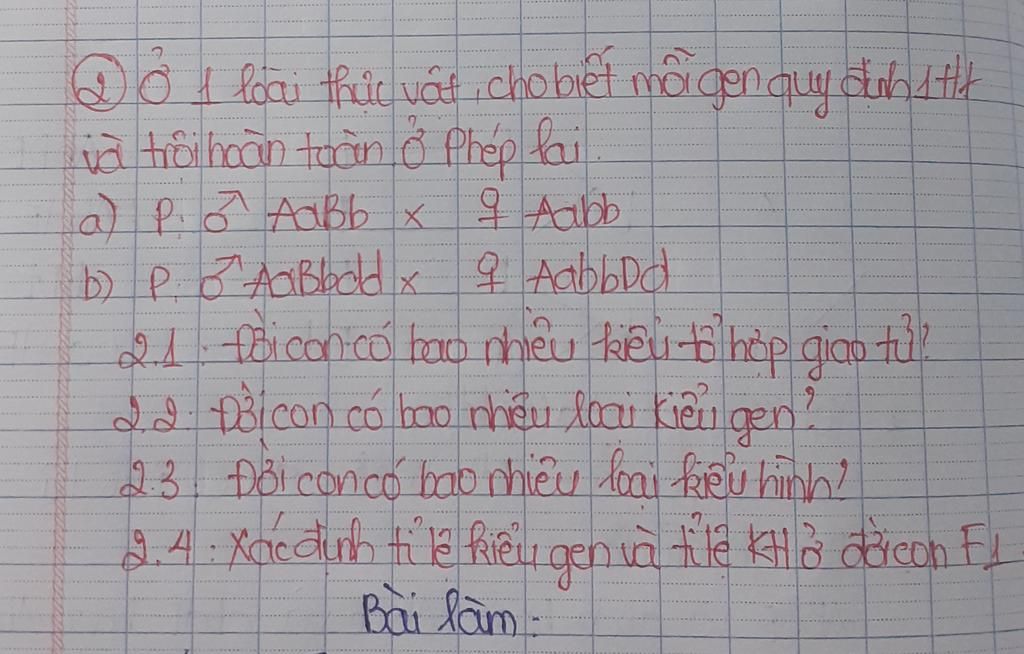 ② Ở 1 loài thực vật, cho biết mỗi gen quy định 1 tt
và trội hoàn toàn ở Phép lai.
a) P: ♂ AaBb x ♀ Aabb
b) P: ♂ AaBbdd x ♀ AabbDd
2.1. Đời con có bao nhiêu kiểu tổ hợp giao tử?
2.2. Đời con có bao nhiêu loại kiểu gen?
2.3. Đời con có bao nhiêu loại kiểu hình?
2.4. Xác định tỉ lệ kiểu gen và tỉ lệ KH ở đời con F1
Bài làm: